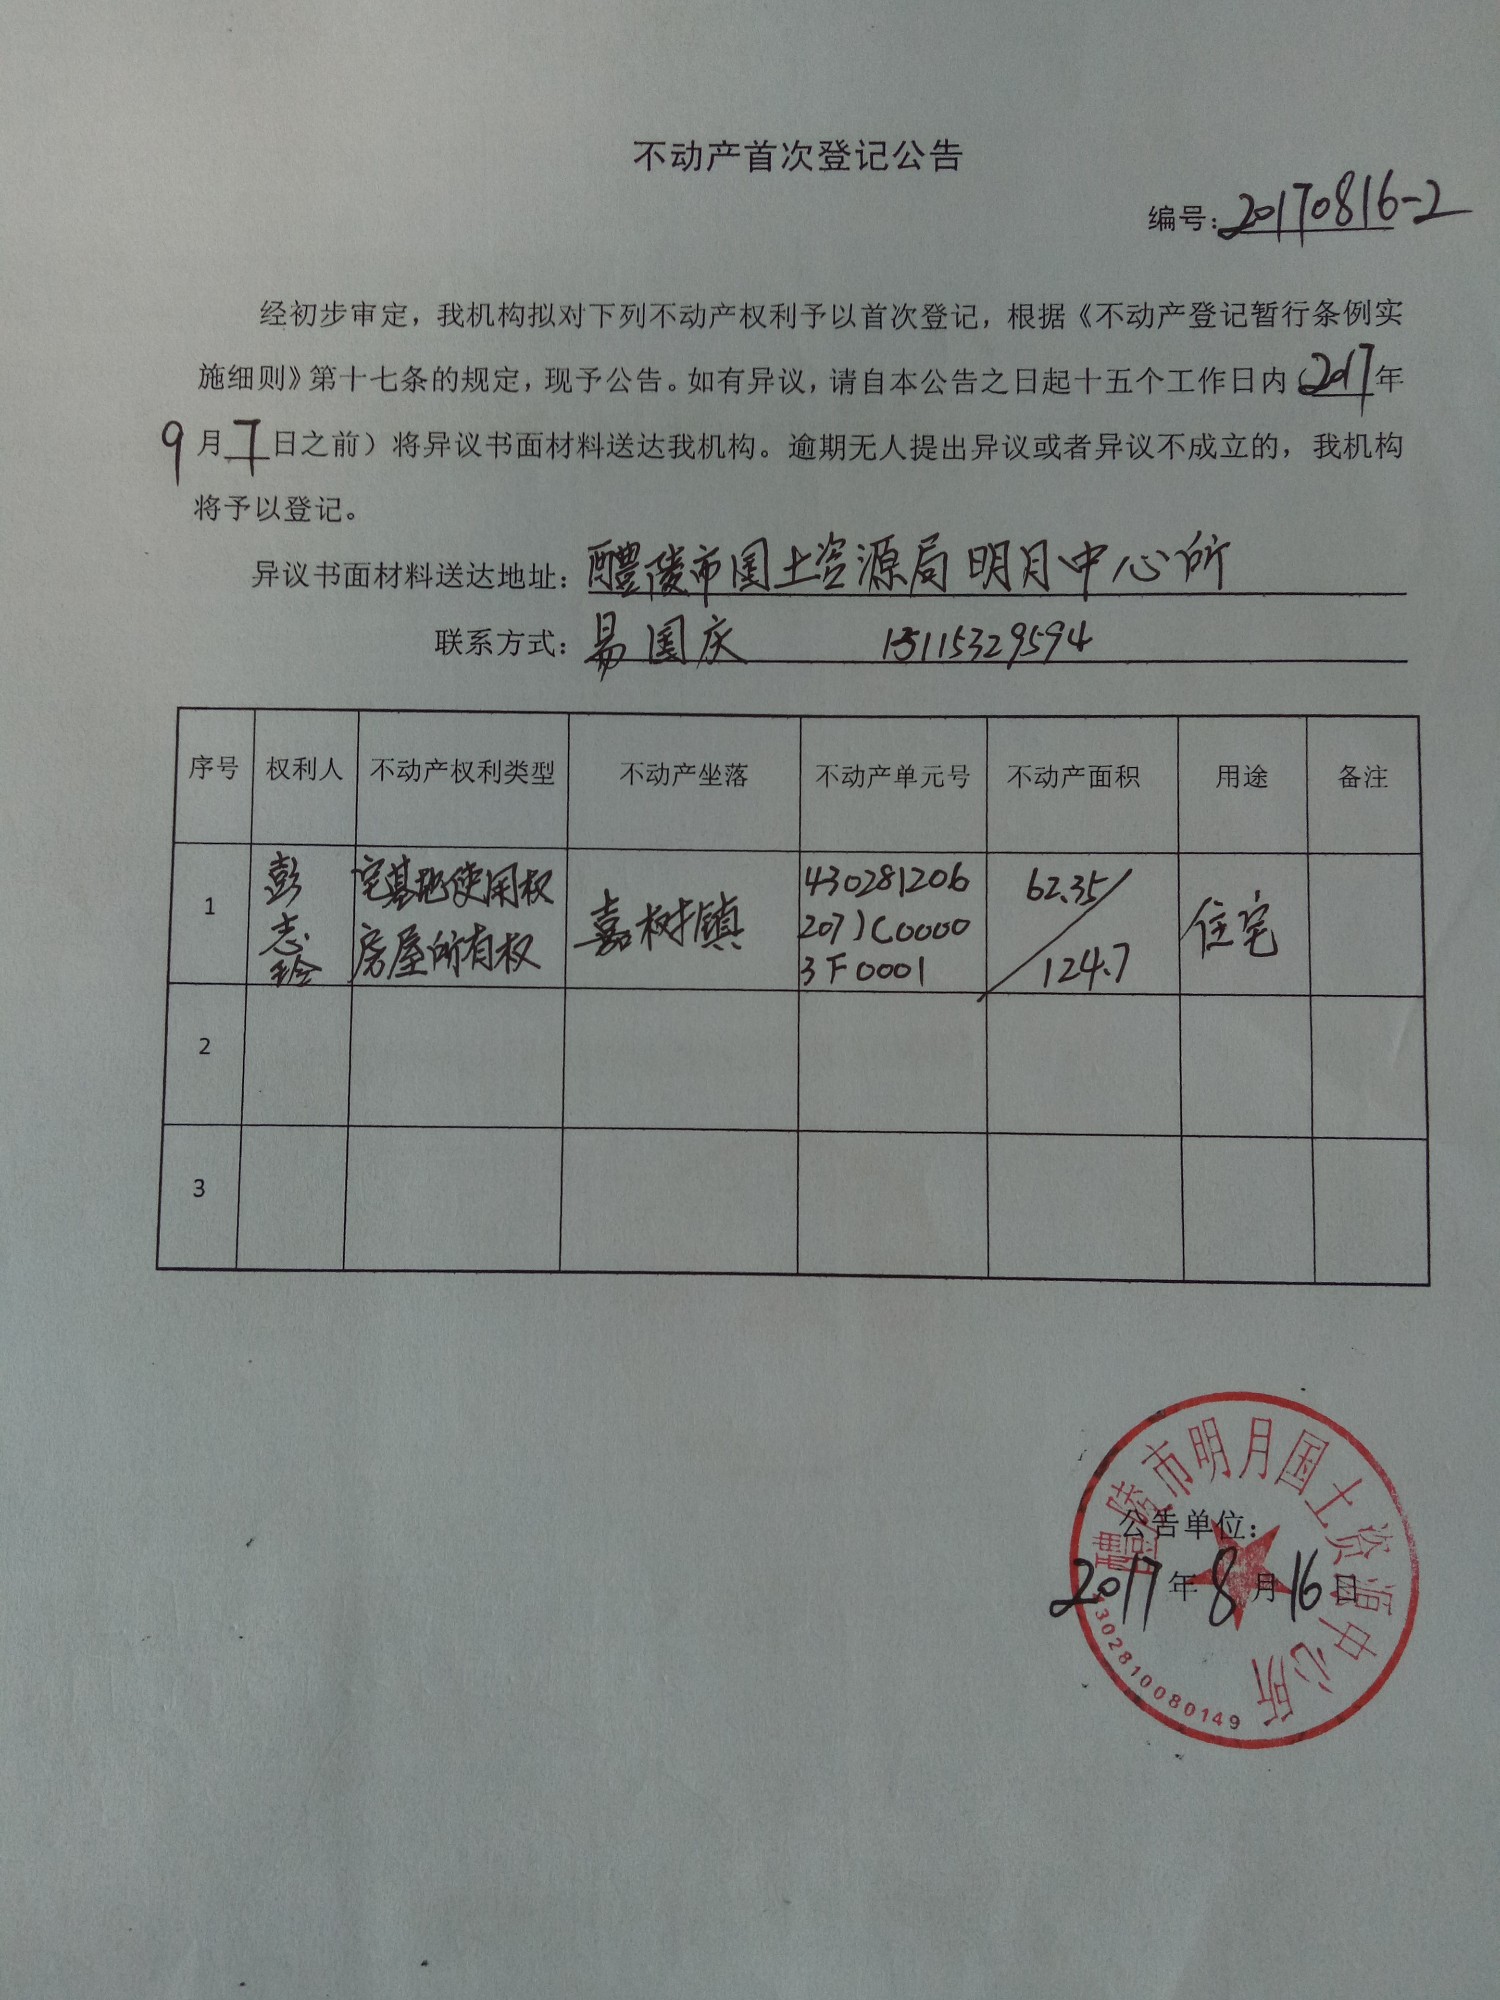 不动产首次登记公告
编号：20170816-2
经初步审定，我机构拟对下列不动产权利予以首次登记，根据《不动产登记暂行条例实
施细则》第十七条的规定，现予公告。如有异议，请自本公告之日起十五个工作日内（2017年
9月7日之前）将异议书面材料送达我机构。逾期无人提出异议或者异议不成立的，我机构
将予以登记。
异议书面材料送达地址：醴陵市国土资源局明月中心所
联系方式：易国庆 15115329594
序号 权利人 不动产权利类型 不动产坐落 不动产单元号 不动产面积 用途 备注
1 彭志玲 宅基地使用权 房屋所有权 嘉树镇 430281206 207JC0000 3F0001 62.35/124.7 住宅
2
3
醴陵市明月国土资源中心所
公告单位：
2017年8月16日
4302810080149